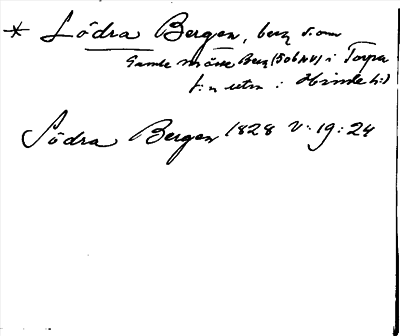 * Södra Bergen, berg s. om
Gamle måsse Berg (5 ob NV) i Torpa
s:n utm : Hzinde h:)
Södra Bergen 1828 V: 19: 24